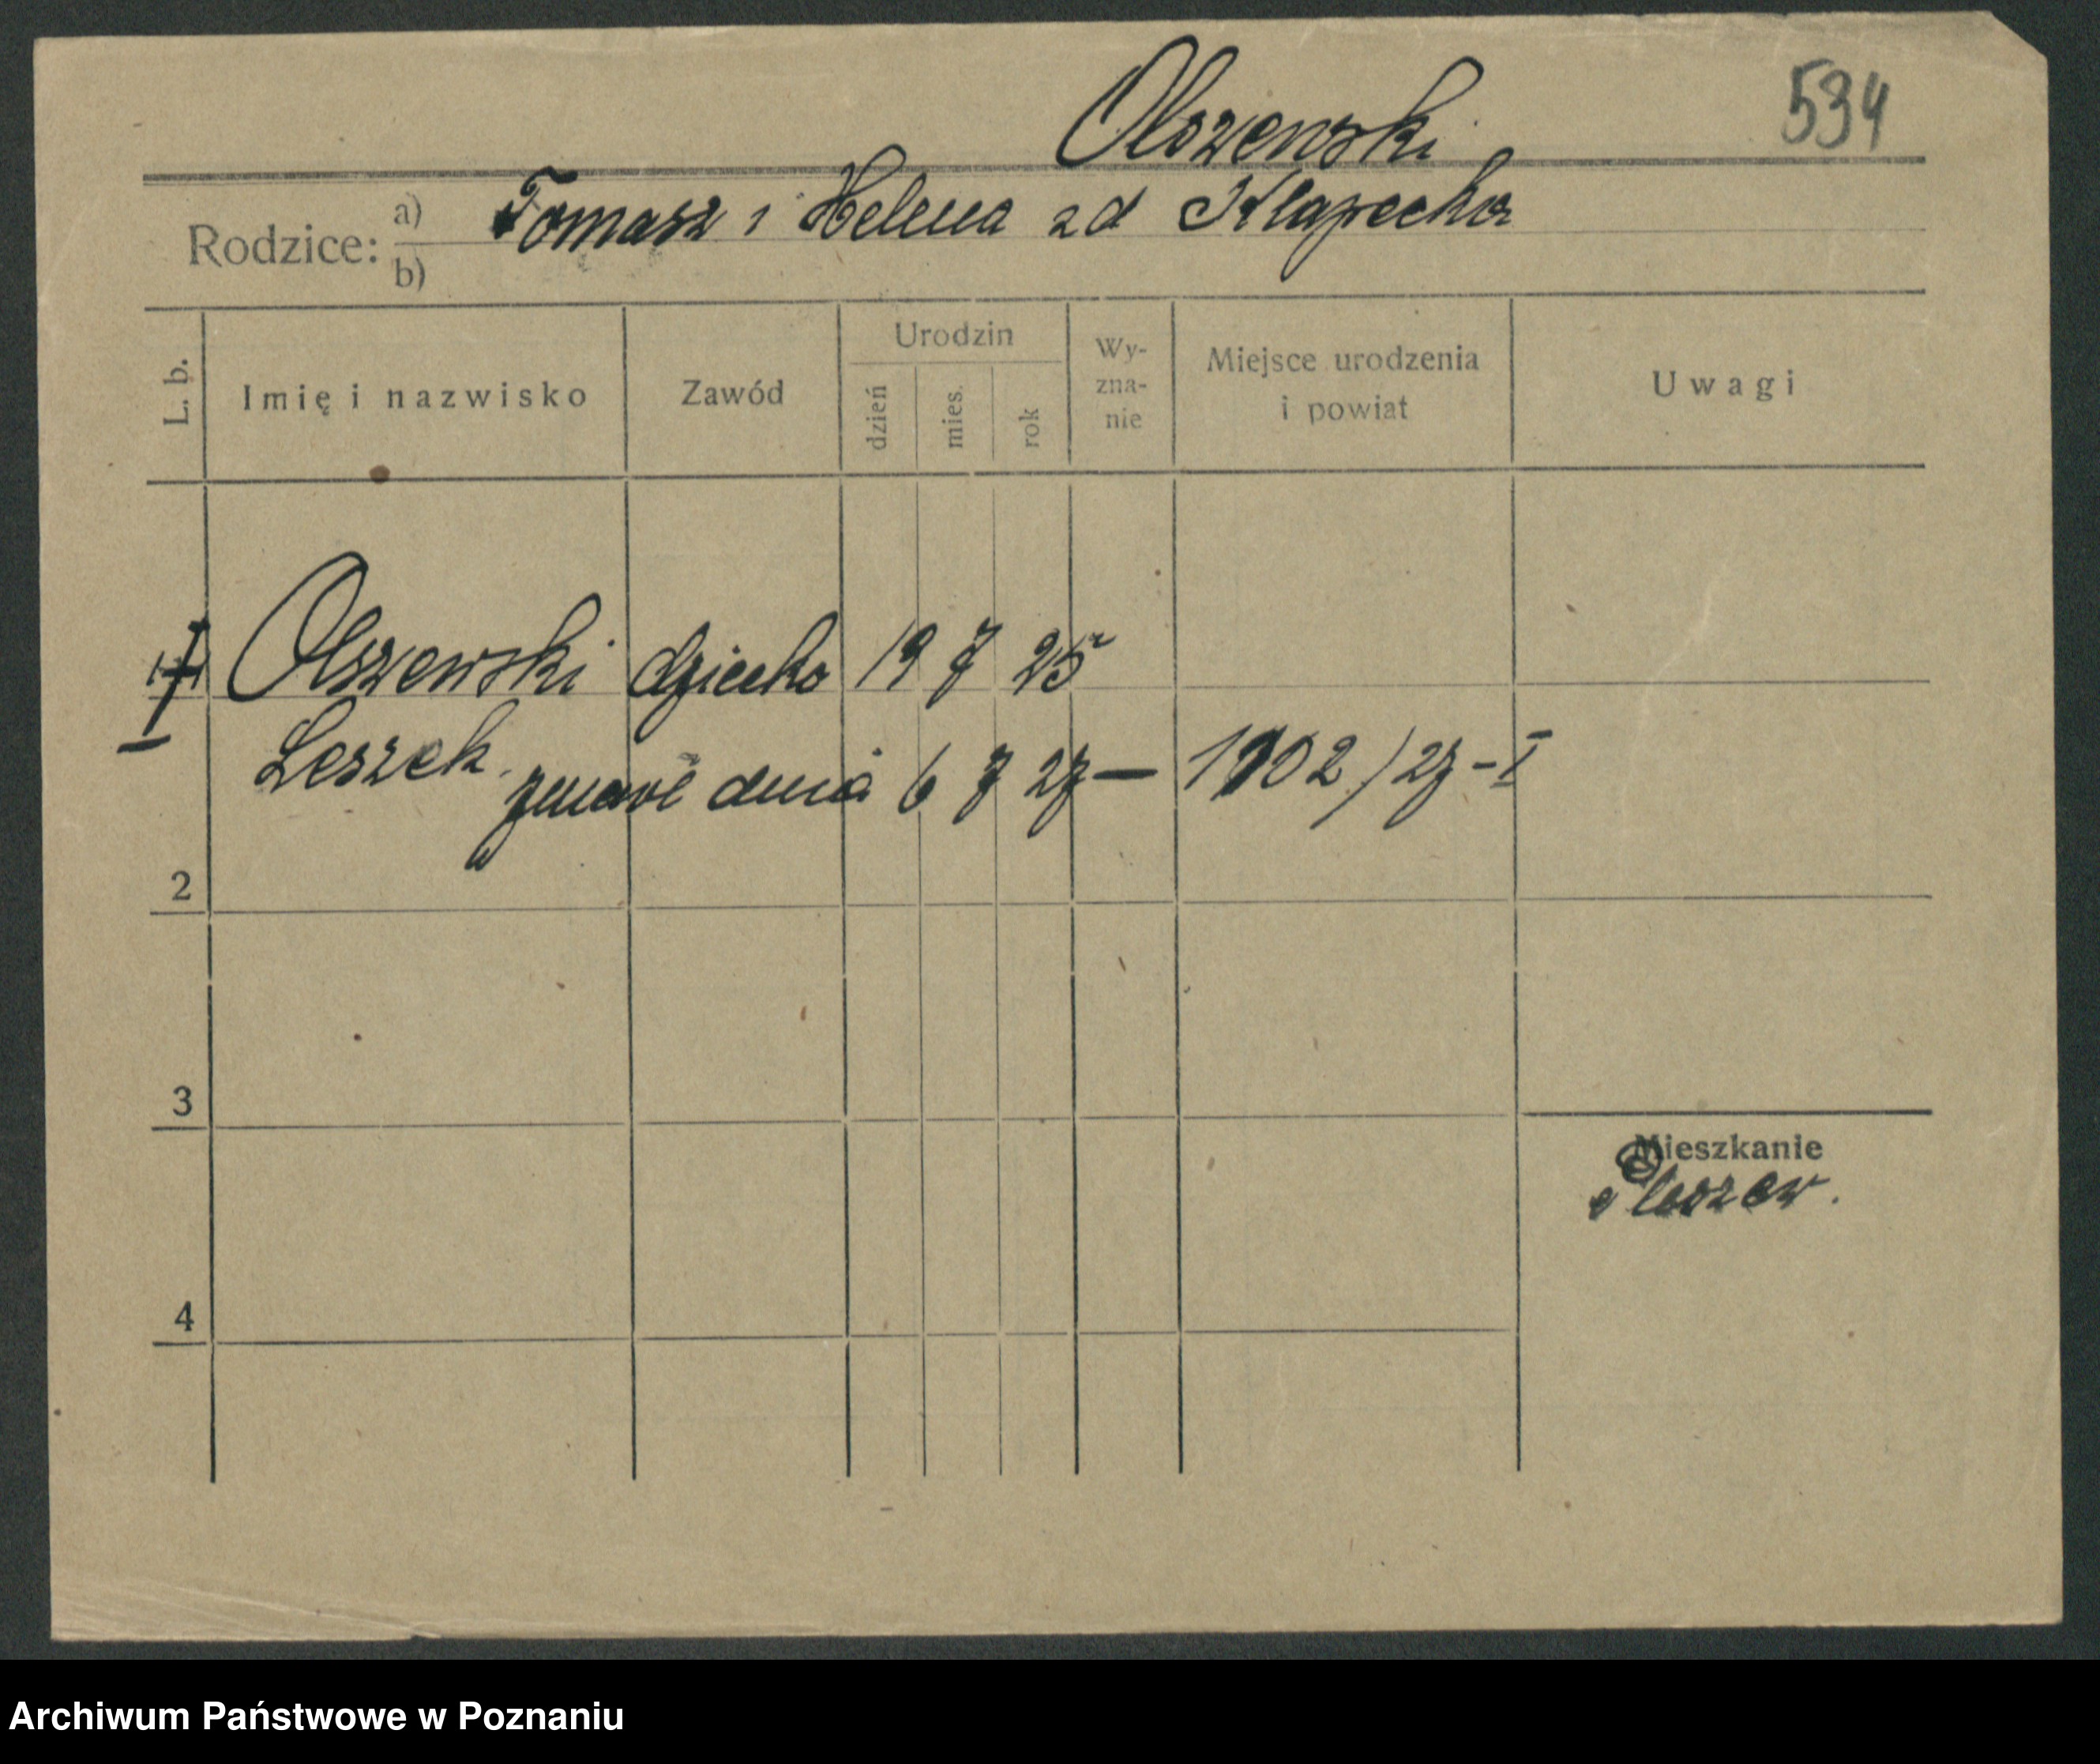 Olszewski
534
Rodzice: a) Tomasz i Helena zd Klapecka
b)
L. b.
Imię i nazwisko
Zawód
Urodzin
dzień
mies.
rok
Wy-
zna-
nie
Miejsce urodzenia
i powiat
Uwagi
1 Olszewski dziecko 19 7 25
Leszek
zmarł dnia 6 7 27 — 1102/27-I
2
3
Mieszkanie
Pleszew.
4
Archiwum Państwowe w Poznaniu